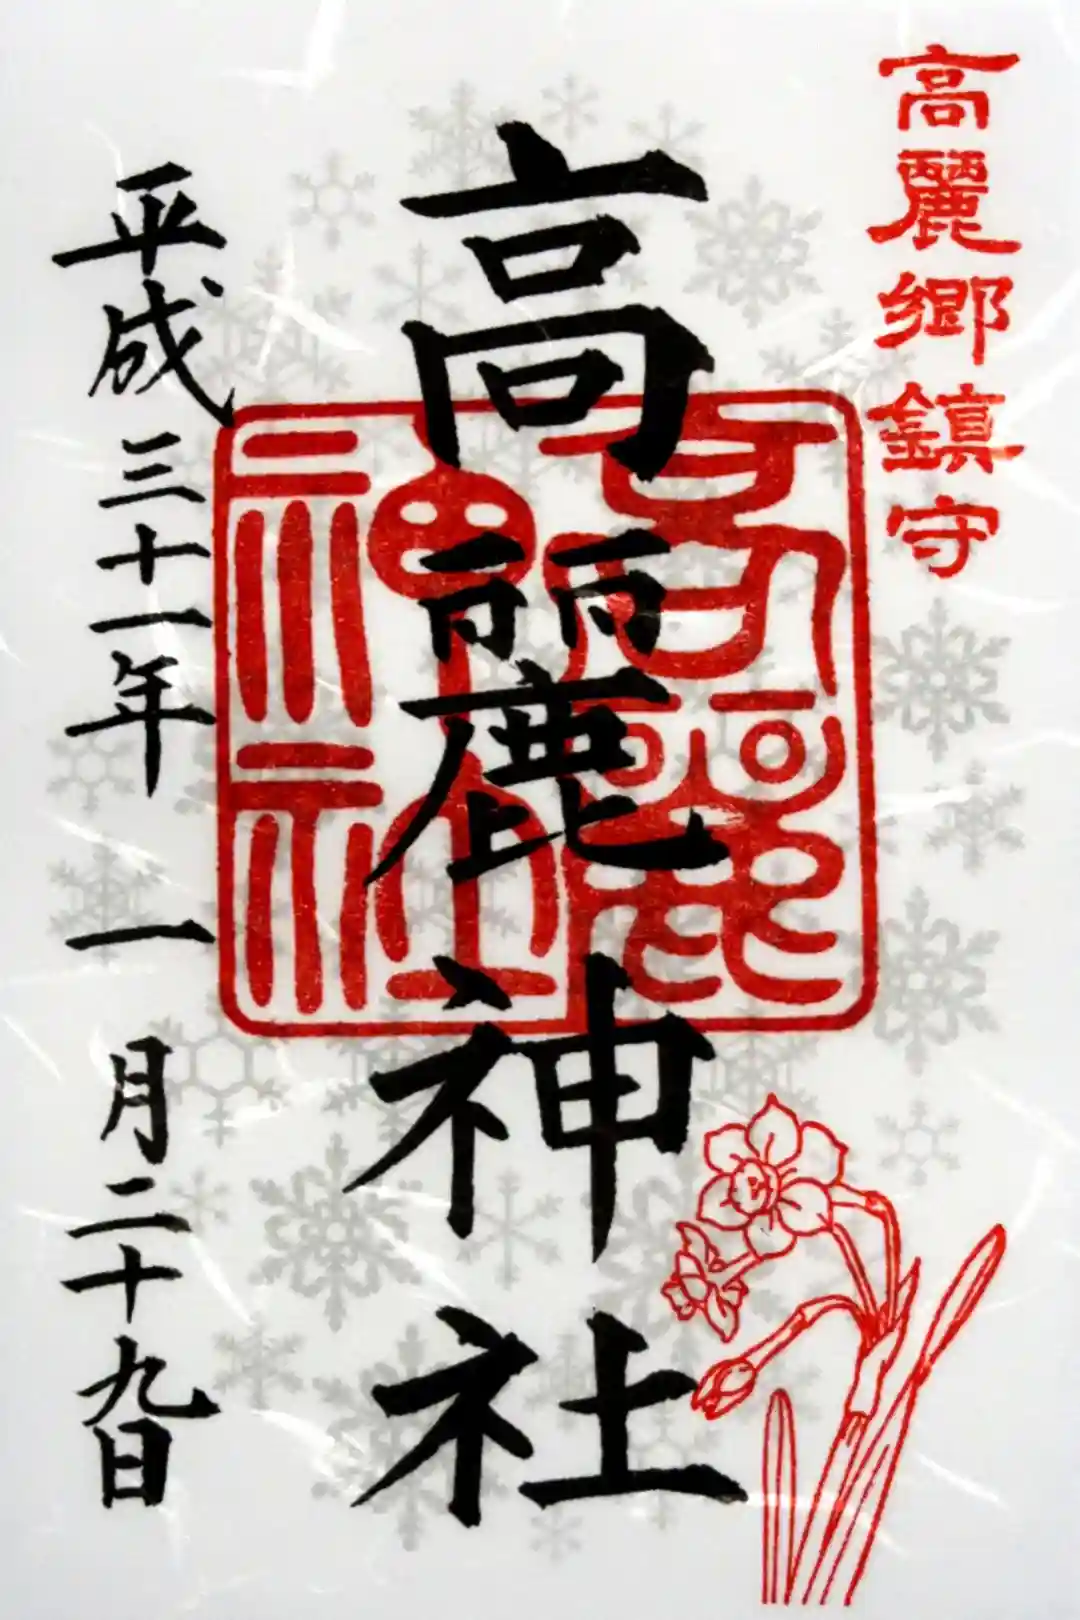 高麗郷鎮守
高麗神社
高麗神社
平成三十一年一月二十九日